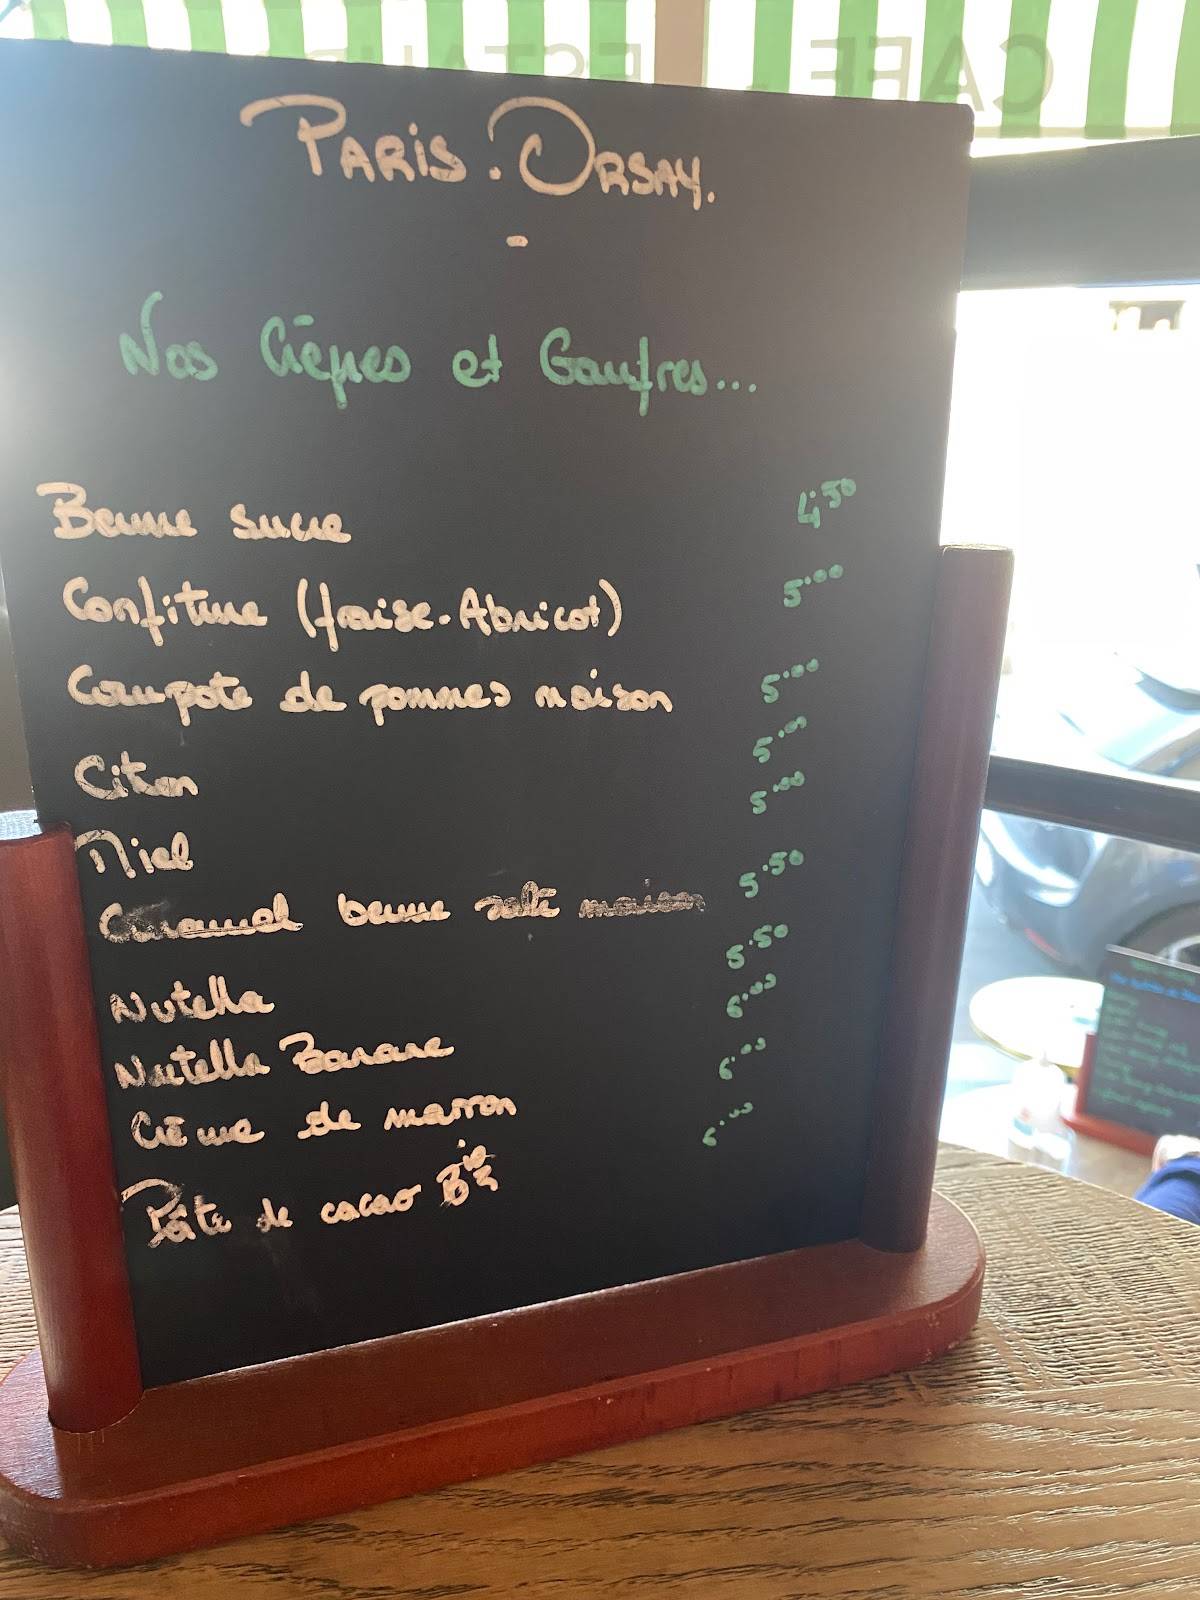 CAFE
PARIS. ORSAY.
-
Nos Crêpes et Gaufres...
Beurre sucre 4.50
Confiture (fraise-Abricot) 5.00
Compote de pommes maison 5.00
Citron 5.00
Miel 5.00
Caramel beurre salé maison 5.50
Nutella 5.50
Nutella Banane 6.00
Crème de marron 6.00
Pâte de cacao Bio 6.00